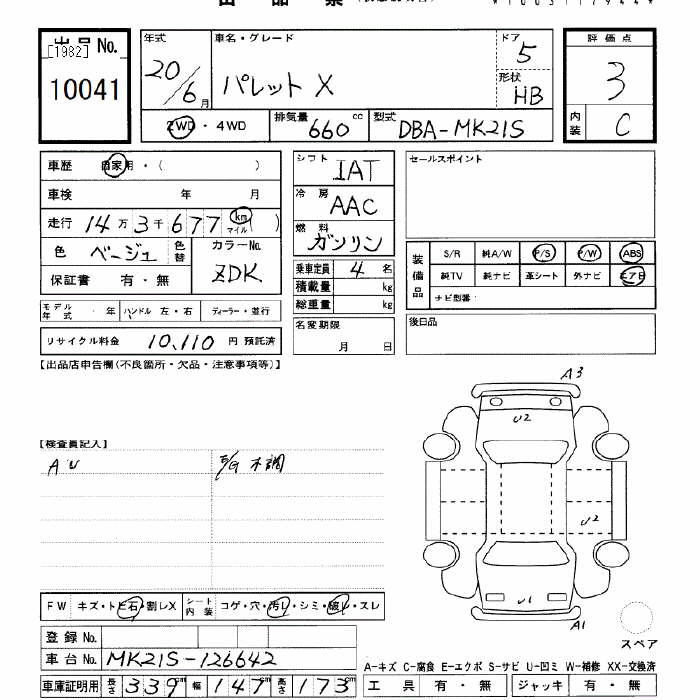 出品票
出品 No.
[1982]
10041
年式
20/6月
車名・グレード
パレット X
ドア
5
形状
HB
評価点
3
内装
C
2WD・4WD
排気量 660 cc
型式 DBA-MK21S
車歴 自家用・( )
車検 年 月
走行 14万3千677 km マイル ( )
色 ベージュ 色替
カラーNo. ZDK
保証書 有・無
モデル年式 ・ 年
ハンドル 左・右
ディーラー・並行
リサイクル料金 10,110 円 預託済
シフト IAT
冷房 AAC
燃料 ガソリン
乗車定員 4 名
積載量 kg
総重量 kg
名変期限
月 日
セールスポイント
装備品
S/R 純A/W P/S P/W ABS
純TV 純ナビ 革シート 外ナビ エアB
ナビ型番:
後日品
【出品店申告欄(不良箇所・欠品・注意事項等)】
A3
U2
【検査員記入】
AU
E/G 不調
U2
U1
A1
スペア
FW キズ・トビ石・割レX
シート内装 コゲ・穴・汚レ・シミ・破レ・スレ
登録 No.
車台 No. MK21S-126642
車庫証明用 長さ 339 cm 幅 147 cm 高さ 173 cm
A-キズ C-腐食 E-エクボ S-サビ U-凹ミ W-補修 XX-交換済
工具 有・無
ジャッキ 有・無